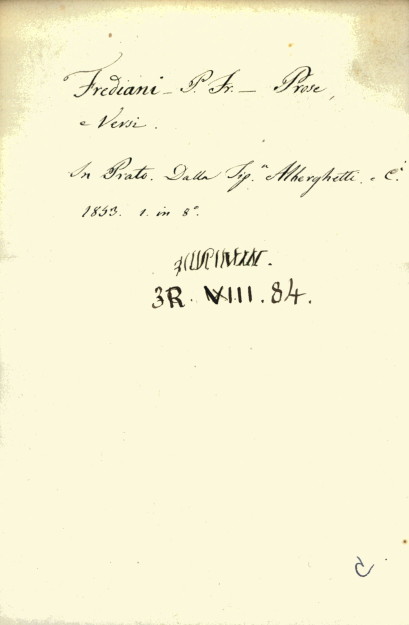 Frediani - P. Fr. - Prose,
e Versi.
In Prato. Dalla Tip.ª Alberghetti e C.i
1853. 1. in 8º.
3R. VIII. 84.
C